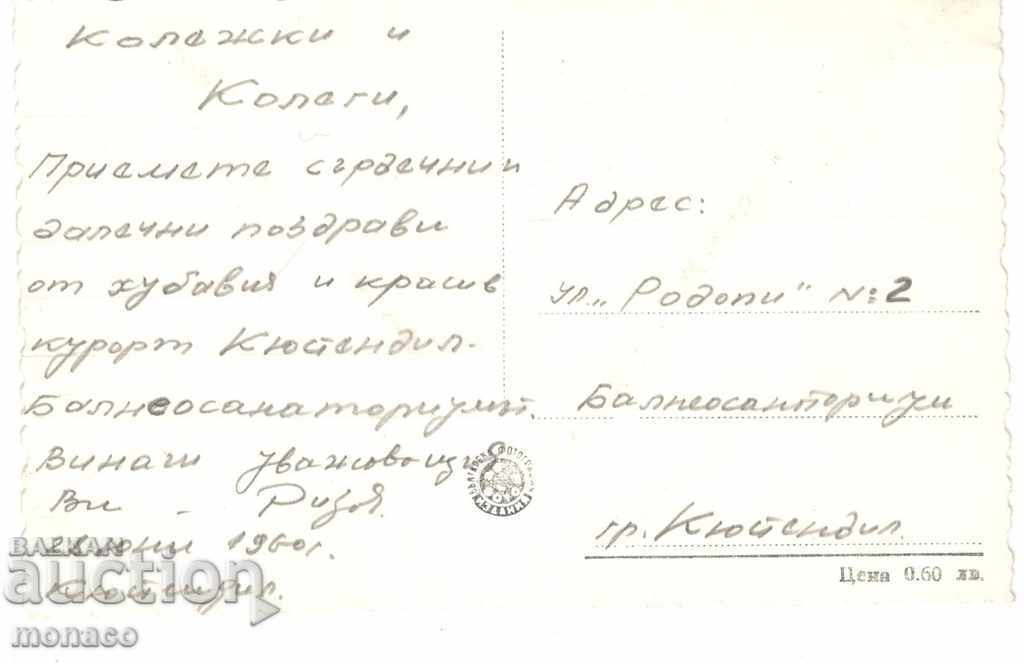 Колежки и
Колеги,
Приемете сърдечни и
далечни поздрави
от хубавия и красив
курорт Кюстендил -
Балнеосанаториумът.
Винаги уважаващ
Ви -
юни 1960 г.
Кюстендил.
Адрес:
ул. „Родопи" №: 2
Балнеосанториум
гр. Кюстендил.
Цена 0.60 лв.
БЪЛГАРСКА ФОТОГРАФИЯ
ИЗДАНИЕ
БАЛКАН
auction
monaco